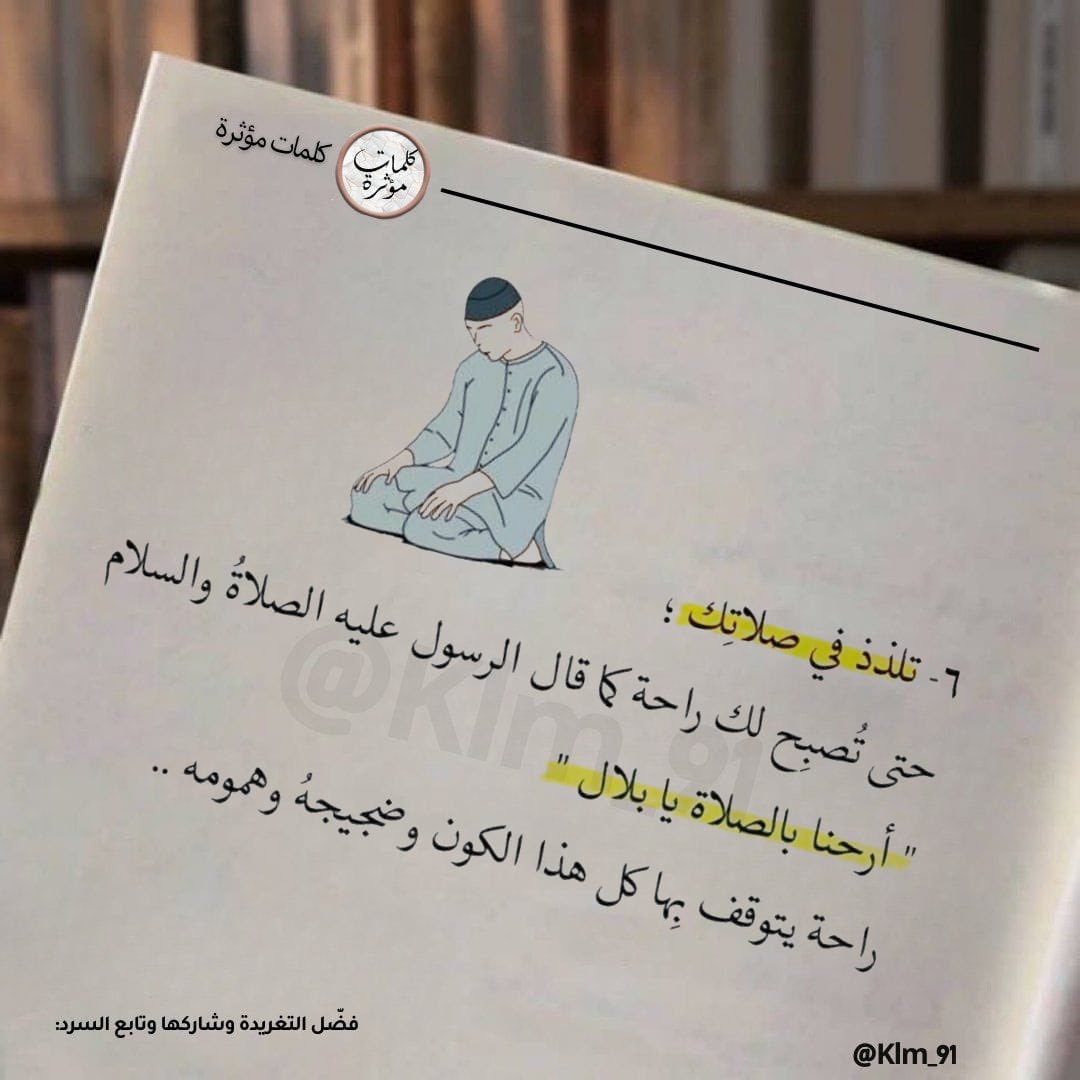 كلمات مؤثرة
كلمات
مؤثرة
٦- تلذذ في صلاتِك ؛
حتى تُصبِح لك راحة كما قال الرسول عليه الصلاةُ والسلام
" أرحنا بالصلاة يا بلال "
راحة يتوقف بِها كل هذا الكون وضجيجهُ وهمومه ..
@Klm_91
فضّل التغريدة وشاركها وتابع السرد:
@Klm_91